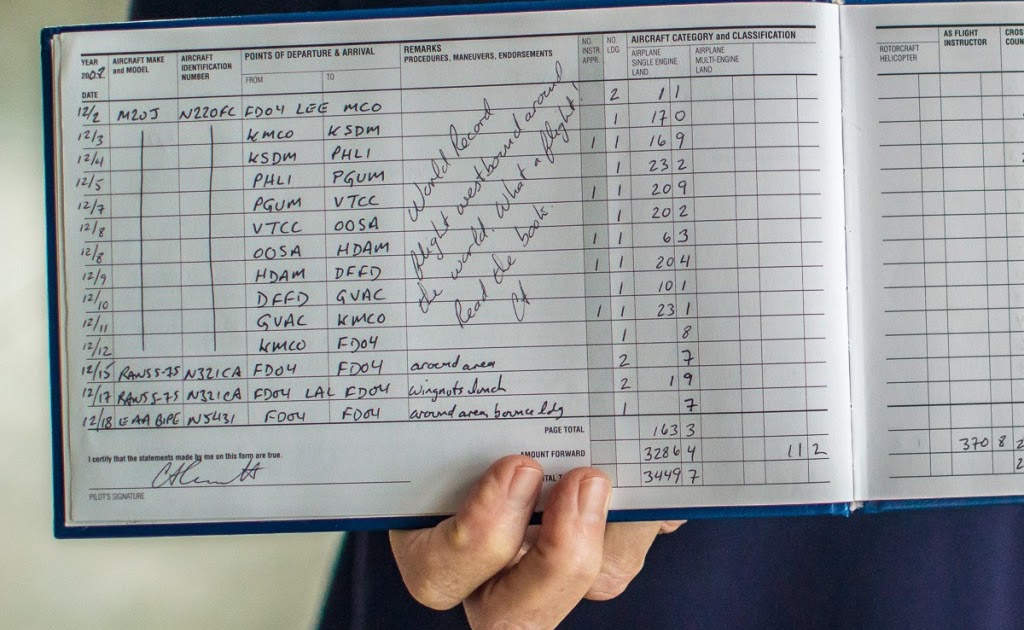 YEAR 2002 AIRCRAFT MAKE and MODEL AIRCRAFT IDENTIFICATION NUMBER POINTS OF DEPARTURE & ARRIVAL REMARKS PROCEDURES, MANEUVERS, ENDORSEMENTS NO. INSTR APPR. NO. LDG AIRCRAFT CATEGORY and CLASSIFICATION AS FLIGHT INSTRUCTOR CROSS COUN
DATE FROM TO AIRPLANE SINGLE ENGINE LAND AIRPLANE MULTI-ENGINE LAND ROTORCRAFT HELICOPTER
12/2 M20J N220FC FD04 LEE MCO 2 1 1
12/3 KMCO KSDM 1 17 0
12/4 KSDM PHLI 1 1 16 9
12/5 PHLI PGUM 1 23 2
12/7 PGUM VTCC 1 1 20 9
12/8 VTCC OOSA 1 20 2
12/8 OOSA HDAM 1 1 6 3
12/9 HDAM DFFD 1 1 20 4
12/10 DFFD GVAC 1 10 1
12/11 GVAC KMCO 1 1 23 1
12/12 KMCO FD04 1 8
World Record
flight westbound around
the world. What a flight!
Read the book.
12/15 RANS S-7S N321CA FD04 FD04 around area 2 7
12/17 RANS S-7S N321CA FD04 LAL FD04 wingnuts lunch 2 1 9
12/18 EAA BIPE N5431 FD04 FD04 around area, bounce ldg 1 7
PAGE TOTAL 163 3
I certify that the statements made by me on this form are true. AMOUNT FORWARD 3286 4 11 2 370 8
3449 7
PILOT'S SIGNATURE